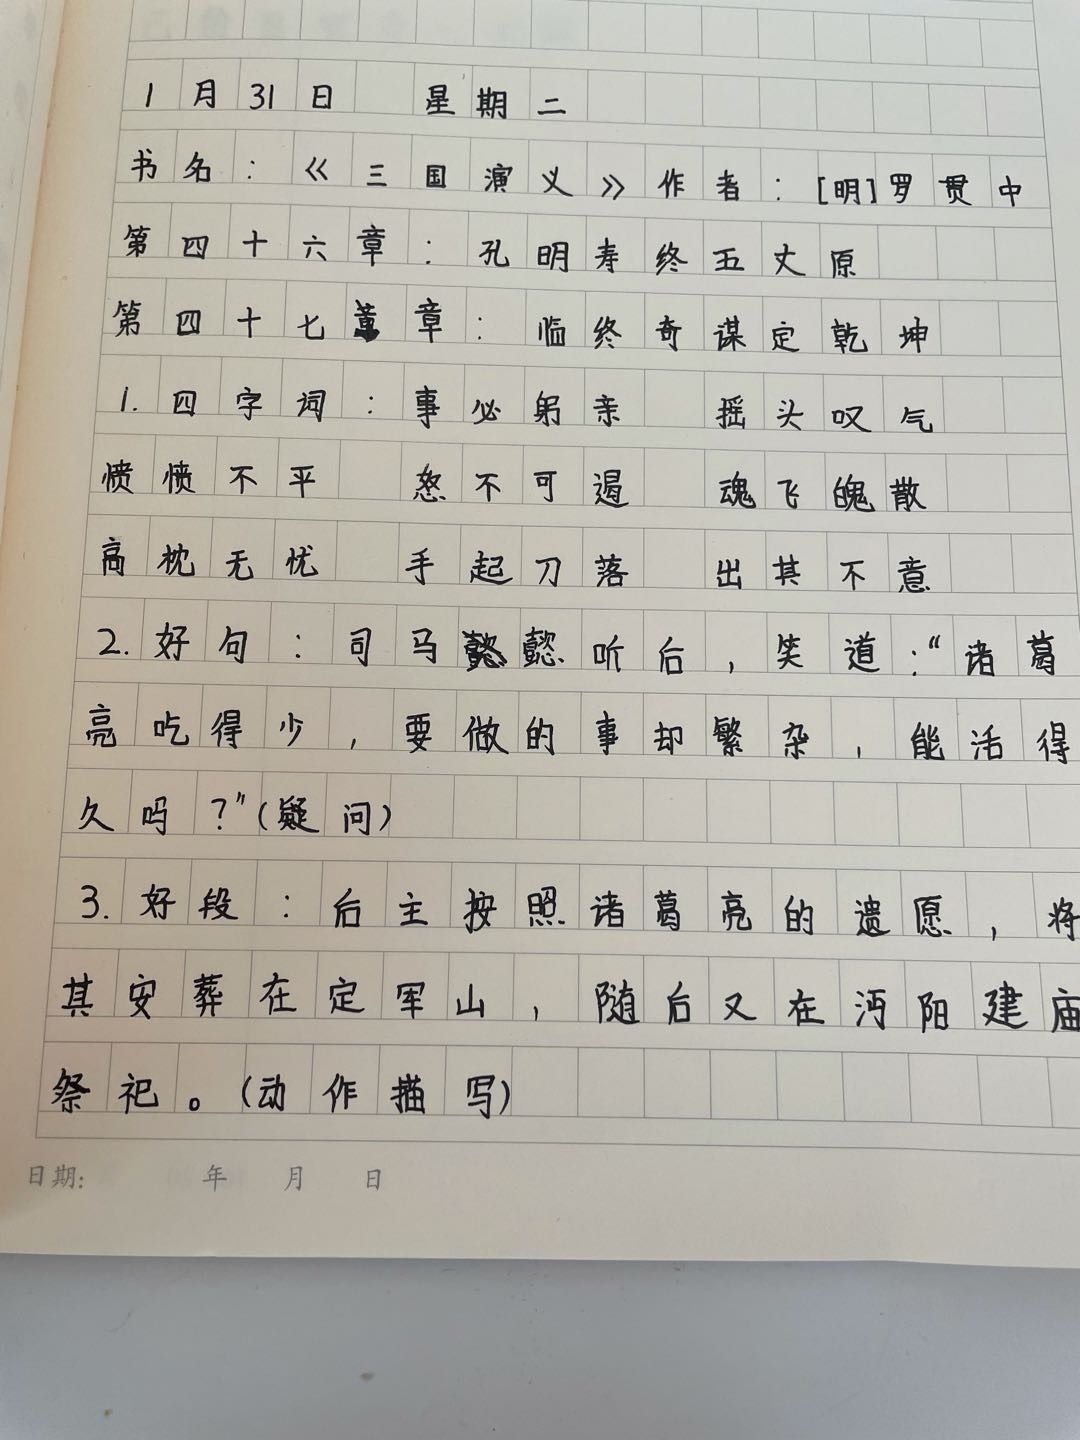 1月31日 星期二
书名:《三国演义》作者:[明]罗贯中
第四十六章:孔明寿终五丈原
第四十七章:临终奇谋定乾坤
1.四字词:事必躬亲 摇头叹气
愤愤不平 怒不可遏 魂飞魄散
高枕无忧 手起刀落 出其不意
2.好句:司马懿听后,笑道:“诸葛
亮吃得少,要做的事却繁杂,能活得
久吗?”(疑问)
3.好段:后主按照诸葛亮的遗愿,将
其安葬在定军山,随后又在沔阳建庙
祭祀。(动作描写)
日期: 年 月 日